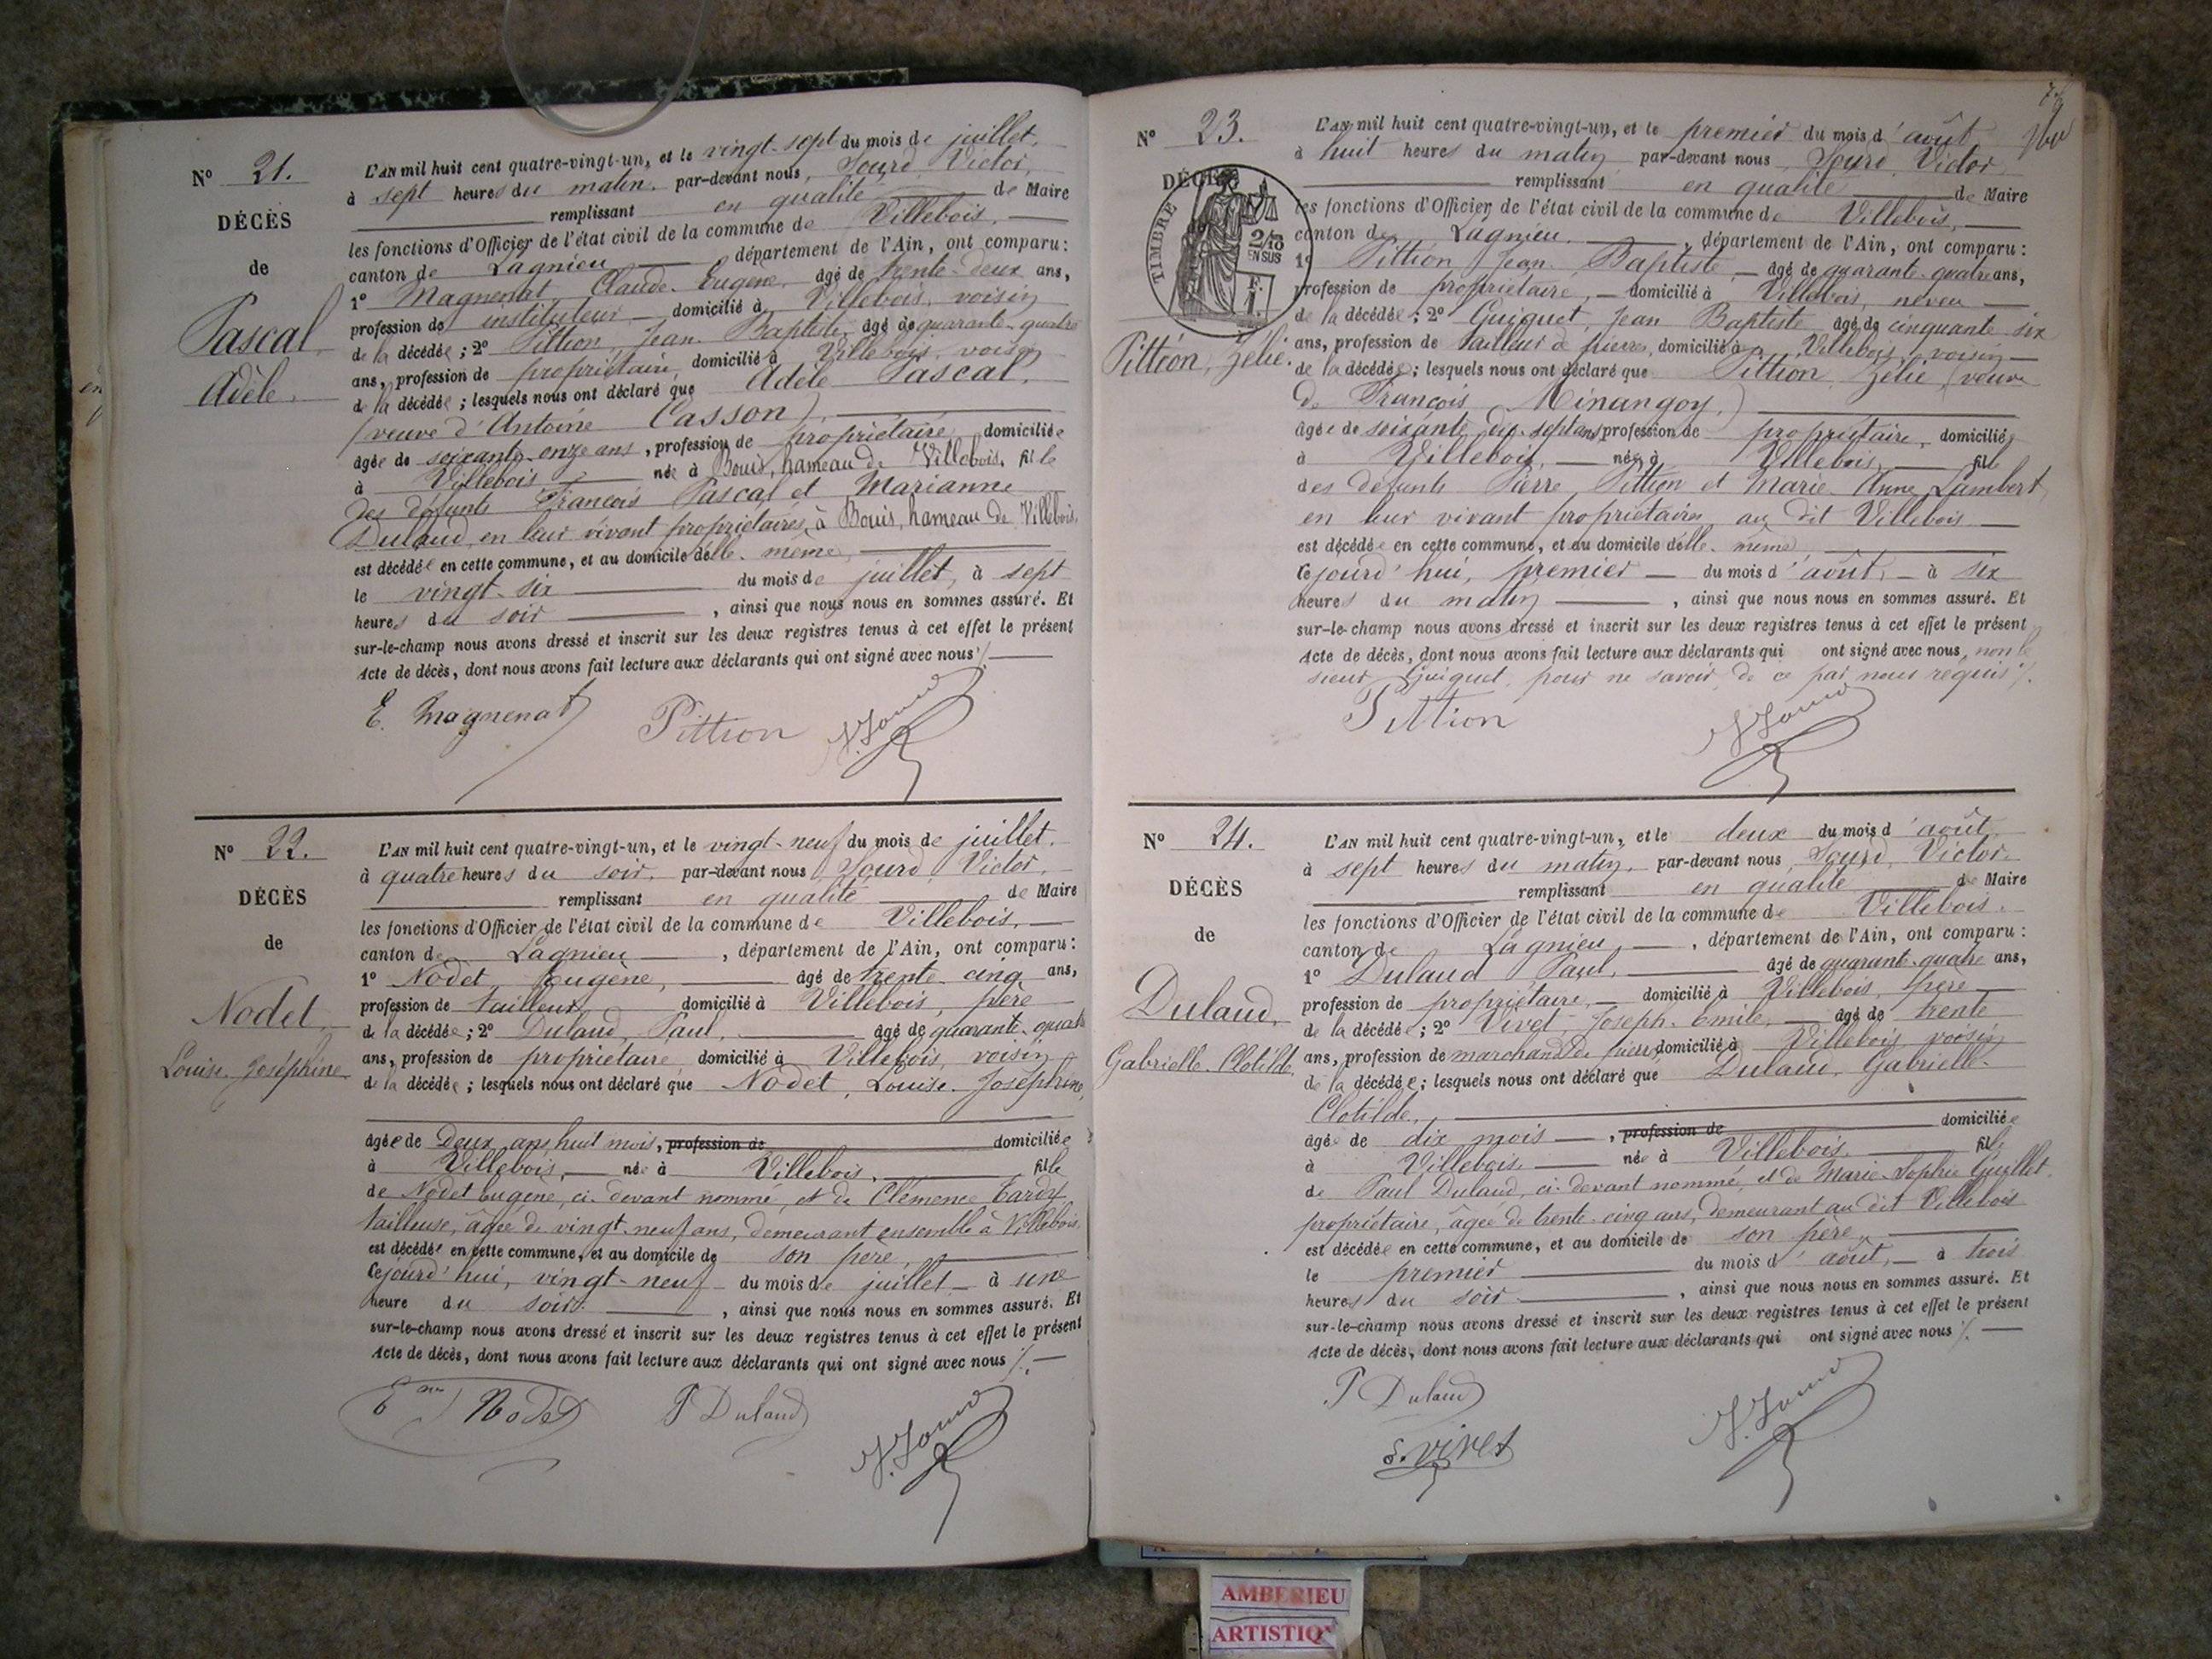 N° 21.
DÉCÈS
de
Pascal
Adèle.
L'AN mil huit cent quatre-vingt-un, et le vingt-sept du mois de juillet,
à sept heures du matin, par-devant nous, Sourd, Victor,
remplissant en qualité de Maire
les fonctions d'Officier de l'état civil de la commune de Villebois,
canton de Lagnieu, département de l'Ain, ont comparu:
1° Magnenat Claude-Eugène, âgé de trente-deux ans,
profession de instituteur domicilié à Villebois, voisin
de la décédée; 2° Pittion, Jean-Baptiste, âgé de quarante-quatre
ans, profession de propriétaire, domicilié à Villebois, voisin
de la décédée; lesquels nous ont déclaré que Adèle Pascal,
(veuve d'Antoine Casson),
âgée de soixante-onze ans, profession de propriétaire, domiciliée
à Villebois née à Bouis, hameau de Villebois, fille
des défunts François Pascal et Marianne
Dulaud, en leur vivant propriétaires, à Bouis, hameau de Villebois,
est décédée en cette commune, et au domicile d'elle-même,
le vingt-six du mois de juillet, à sept
heures du soir, ainsi que nous nous en sommes assuré. Et
sur-le-champ nous avons dressé et inscrit sur les deux registres tenus à cet effet le présent
Acte de décès, dont nous avons fait lecture aux déclarants qui ont signé avec nous ./.
E. Magnenat Pittion V. Sourd
N° 22.
DÉCÈS
de
Nodet,
Louise-Joséphine
L'AN mil huit cent quatre-vingt-un, et le vingt-neuf du mois de juillet,
à quatre heures du soir, par-devant nous, Sourd, Victor,
remplissant en qualité de Maire
les fonctions d'Officier de l'état civil de la commune de Villebois,
canton de Lagnieu, département de l'Ain, ont comparu:
1° Nodet Eugène, âgé de trente-cinq ans,
profession de tailleur, domicilié à Villebois, père
de la décédée; 2° Dulaud, Paul, âgé de quarante-quatre
ans, profession de propriétaire domicilié à Villebois, voisin
de la décédée; lesquels nous ont déclaré que Nodet, Louise-Joséphine,
âgée de deux ans huit mois, profession de domiciliée
à Villebois, née à Villebois, fille
de Nodet Eugène, ci-devant nommé, et de Clémence Tardy,
tailleuse, âgée de vingt-neuf ans, demeurant ensemble à Villebois,
est décédée en cette commune, et au domicile de son père,
Cejourd'hui, vingt-neuf du mois de juillet à une
heure du soir, ainsi que nous nous en sommes assuré. Et
sur-le-champ nous avons dressé et inscrit sur les deux registres tenus à cet effet le présent
Acte de décès, dont nous avons fait lecture aux déclarants qui ont signé avec nous ./.
Nodet P Dulaud V. Sourd
N° 23.
DÉCÈS
TIMBRE
2/10
EN SUS
Pittion, Zélie.
L'AN mil huit cent quatre-vingt-un, et le premier du mois d'août
à huit heures du matin par-devant nous Sourd, Victor,
remplissant en qualité de Maire
les fonctions d'Officier de l'état civil de la commune de Villebois,
canton de Lagnieu, département de l'Ain, ont comparu:
1° Pittion Jean-Baptiste, âgé de quarante-quatre ans,
profession de propriétaire, domicilié à Villebois, neveu
de la décédée; 2° Guiguet, Jean Baptiste âgé de cinquante-six
ans, profession de tailleur de pierres, domicilié à Villebois, voisin
de la décédée; lesquels nous ont déclaré que Pittion, Zélie (veuve
de François Minangoy,)
âgée de soixante-dix-sept ans profession de propriétaire, domiciliée
à Villebois, née à Villebois, fille
des défunts Pierre Pittion et Marie-Anne Lambert,
en leur vivant propriétaires au dit Villebois
est décédée en cette commune, et au domicile d'elle-même,
Cejourd'hui, premier du mois d'août, à six
heures du matin, ainsi que nous nous en sommes assuré. Et
sur-le-champ nous avons dressé et inscrit sur les deux registres tenus à cet effet le présent
Acte de décès, dont nous avons fait lecture aux déclarants qui ont signé avec nous, non le
sieur Guiguet, pour ne savoir, de ce par nous requis ./.
Pittion V. Sourd
N° 24.
DÉCÈS
de
Dulaud,
Gabrielle-Clotilde.
L'AN mil huit cent quatre-vingt-un, et le deux du mois d'août,
à sept heures du matin, par-devant nous Sourd, Victor,
remplissant en qualité de Maire
les fonctions d'Officier de l'état civil de la commune de Villebois,
canton de Lagnieu, département de l'Ain, ont comparu:
1° Dulaud Paul, âgé de quarante-quatre ans,
profession de propriétaire, domicilié à Villebois, père
de la décédée; 2° Vivet, Joseph-Emile, âgé de trente
ans, profession de marchand de pierres domicilié à Villebois, voisin
de la décédée; lesquels nous ont déclaré que Dulaud, Gabrielle-
Clotilde,
âgée de dix mois, profession de domiciliée
à Villebois, née à Villebois, fille
de Paul Dulaud, ci-devant nommé, et de Marie-Sophie Guillet,
propriétaire, âgée de trente-cinq ans, demeurant au dit Villebois
est décédée en cette commune, et au domicile de son père,
le premier du mois d'août, à trois
heures du soir, ainsi que nous nous en sommes assuré. Et
sur-le-champ nous avons dressé et inscrit sur les deux registres tenus à cet effet le présent
Acte de décès, dont nous avons fait lecture aux déclarants qui ont signé avec nous ./.
P Dulaud V. Sourd
E. Vivet
AMBERIEU
ARTISTIQ